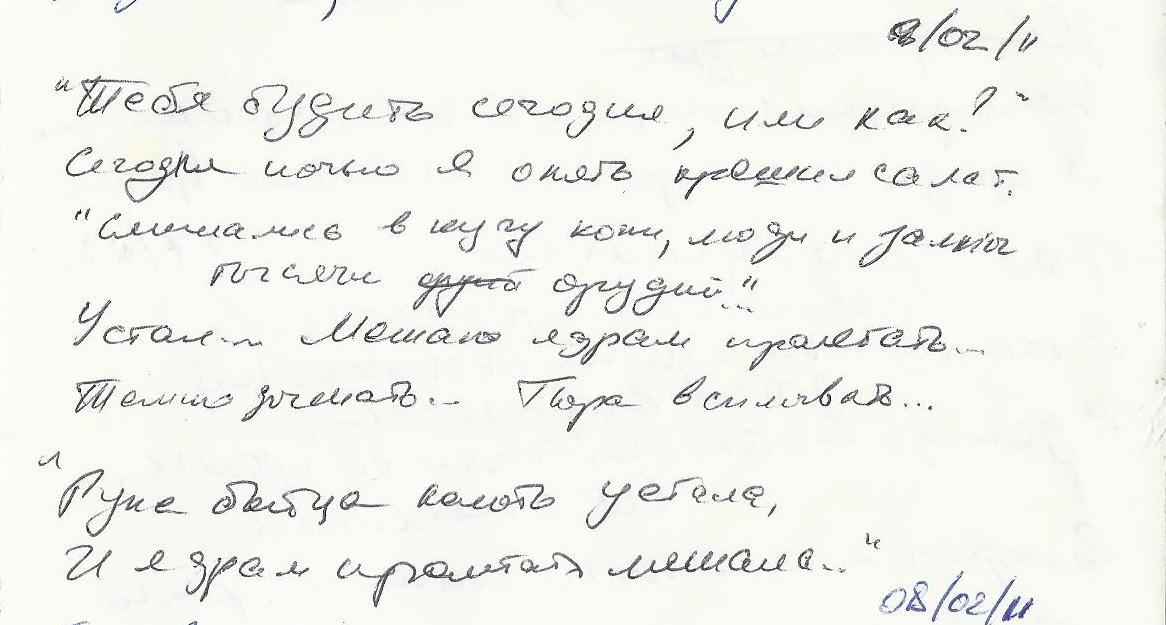 8/02/11
"Тебя будить сегодня, или как?"
Сегодня ночью я опять крошил салат.
"Смешались в кучу кони, люди и залпы
тысячи орудий..."
Устал... Мешаю ядрам пролетать...
Темно зачем... Пора всплывать...
"Рука бойца колоть устала,
И ядрам пролетать мешала..."
08/02/11